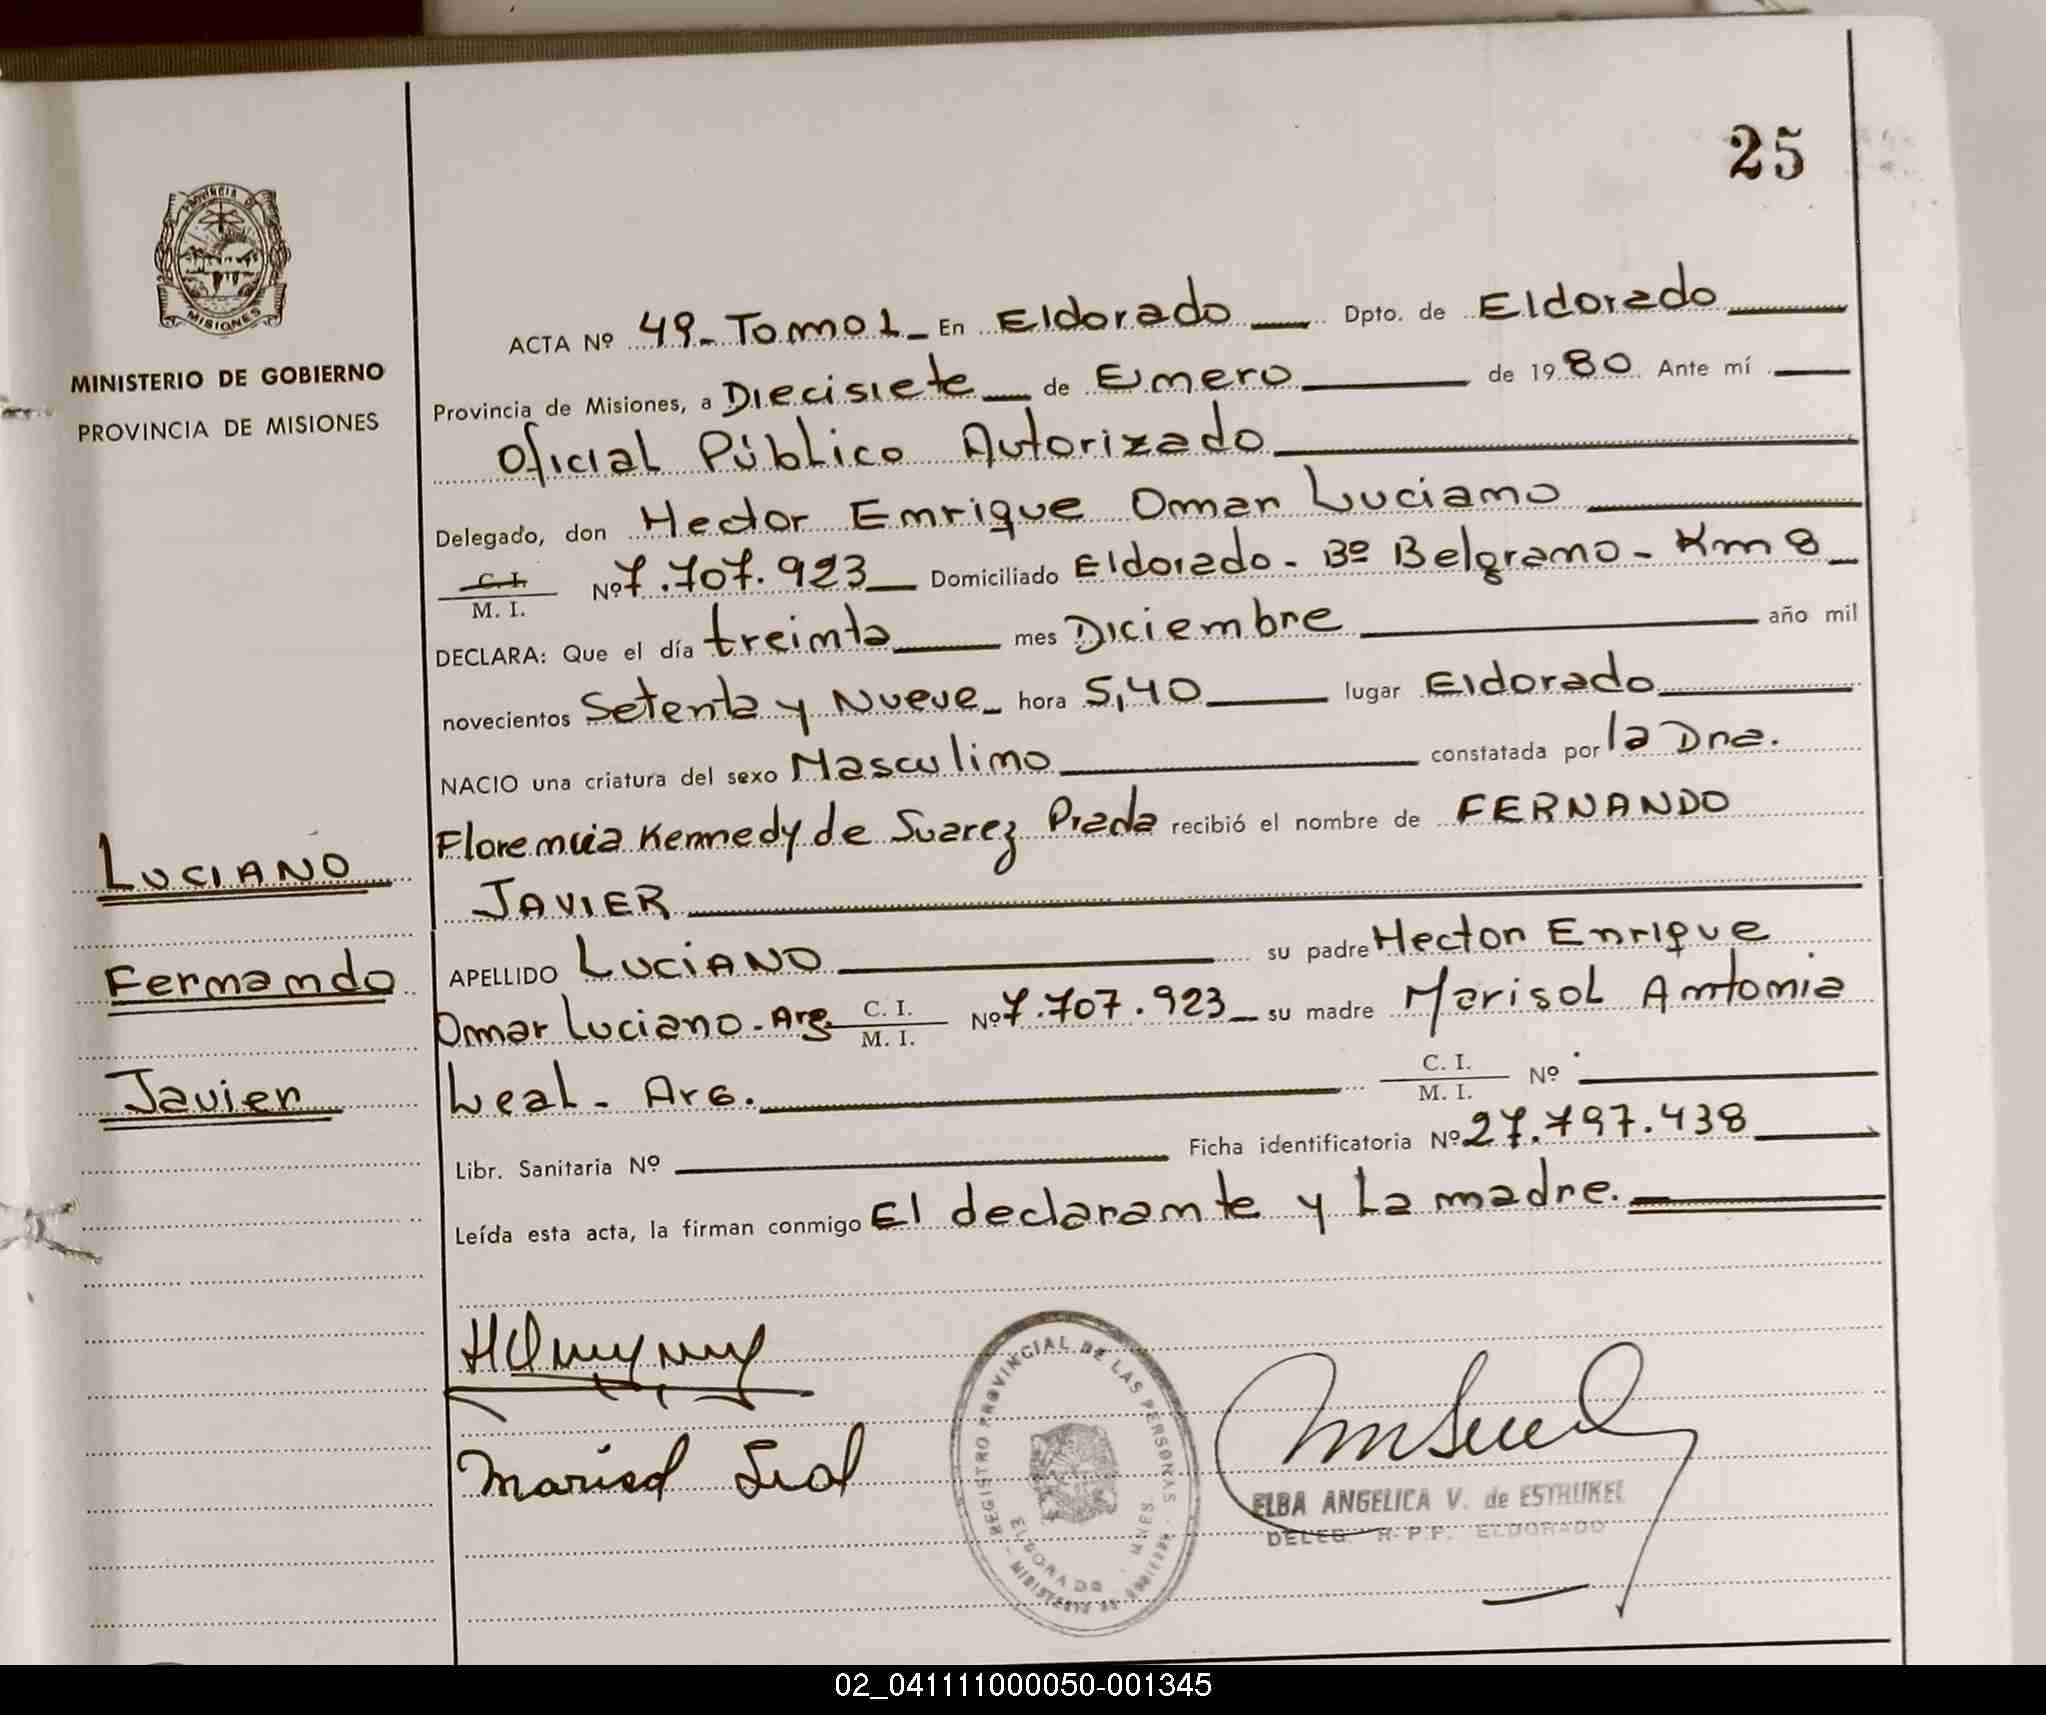 25
PROVINCIA DE
MISIONES
MINISTERIO DE GOBIERNO
PROVINCIA DE MISIONES
ACTA Nº 49_ Tomo 1_ En Eldorado Dpto. de Eldorado
Provincia de Misiones, a Diecisiete de Enero de 1980 Ante mí
Oficial Público Autorizado
Delegado, don Hector Enrique Omar Luciano
C. I.
M. I. Nº 7.707.923 Domiciliado Eldorado - Bº Belgrano - Km 8
DECLARA: Que el día treinta mes Diciembre año mil
novecientos Setenta y Nueve hora 5,40 lugar Eldorado
NACIO una criatura del sexo Masculino constatada por la Dra.
Florencia Kennedy de Suarez Prada recibió el nombre de FERNANDO
JAVIER
APELLIDO LUCIANO su padre Hector Enrique
Omar Luciano - Arg. C. I. M. I. Nº 7.707.923 su madre Marisol Antonia
Leal - Arg. C. I. M. I. Nº
Libr. Sanitaria Nº Ficha identificatoria Nº 27.797.438
Leída esta acta, la firman conmigo El declarante y La madre.
LUCIANO
Fernando
Javier
Marisol Leal
REGISTRO PROVINCIAL DE LAS PERSONAS
ELDORADO - MNES.
MINISTERIO DE GOBIERNO
ELBA ANGELICA V. de ESTRUKEL
DELEG. R. P. P. ELDORADO
02_041111000050-001345